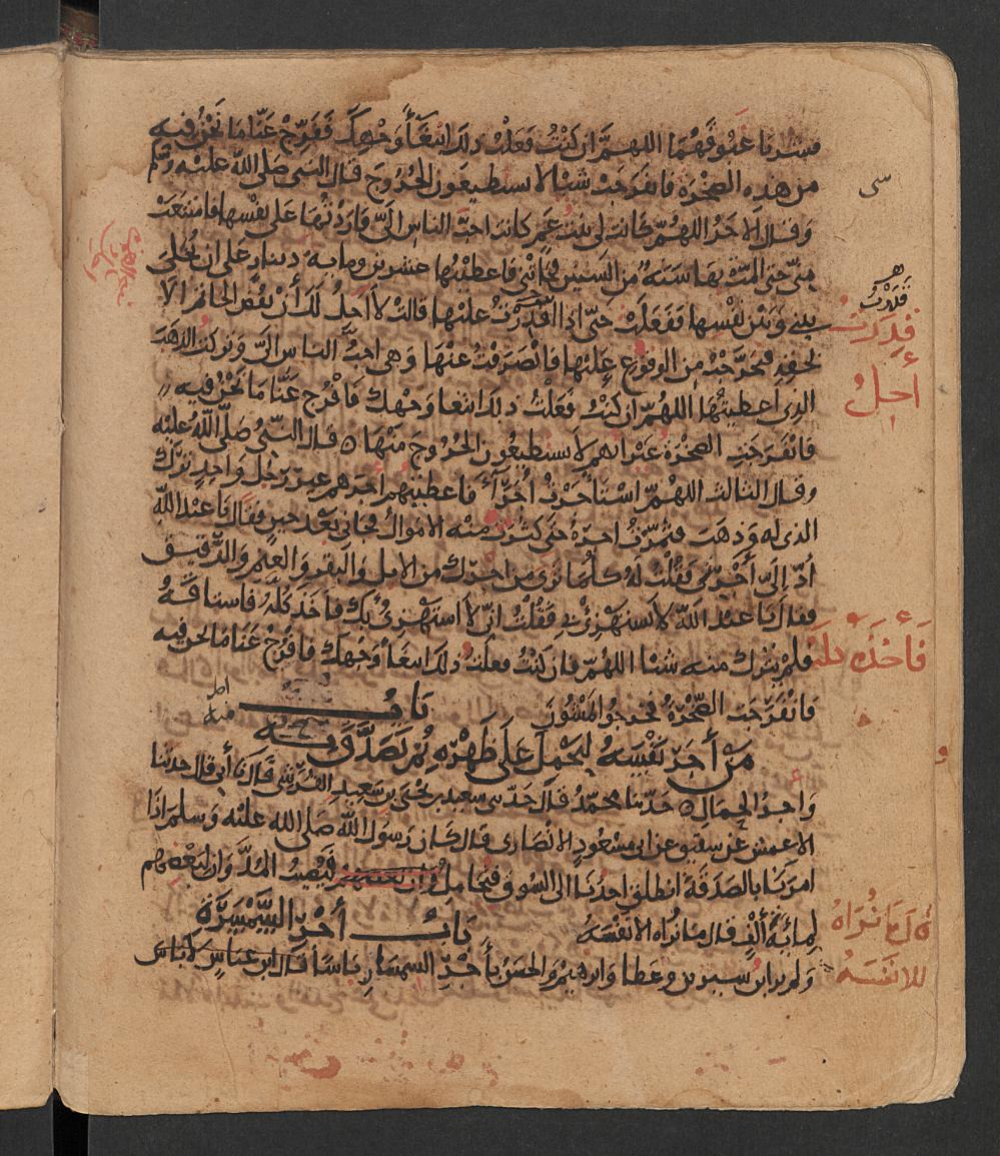 فشربا غبوقهما اللهم ان كنت فعلت ذلك ابتغاء وجهك ففرج عنا ما نحن فيه
من هذه الصخرة فانفرجت شيا لا يستطيعون الخروج قال النبي صلى الله عليه وسلم
وقال الاخر اللهم كانت لي بنت عم كانت احب الناس الي فاردتها على نفسها فامتنعت
مني حتى المت بها سنة من السنين فجاتني فاعطيتها عشرين وماية دينار على ان تخلي
بيني وبين نفسها ففعلت حتى اذا قدرت عليها قالت لا احل لك أن تفض الخاتم الا
بحقه فتحرجت من الوقوع عليها فانصرفت عنها وهي احب الناس الي وتركت الذهب
الذي اعطيتها اللهم ان كنت فعلت ذلك ابتغا وجهك فافرج عنا ما نحن فيه
فانفرجت الصخرة غير انهم لا يستطيعون الخروج منها قال النبي صلى الله عليه
وقال الثالث اللهم استأجرت أجرآء فاعطيتهم اجرهم غير رجل واحد ترك
الذي له وذهب فثمرت اجره حتى كثرت منه الاموال فجاني بعد حين فقال يا عبد الله
أدّ إلي أجري فقلت له كلما ترى من اجرك من الابل والبقر والغنم والرقيق
فقال يا عبد الله لا تستهزئ بي فقلت اني لا استهزئ بك فاخذ كله فاستاقه
فلم يترك منه شيا اللهم فان كنت فعلت ذلك ابتغاء وجهك فافرج عنا ما نحن فيه
فانفرجت الصخرة فخرجوا يمشون
باب
من أجر نفسه ليحمل على ظهره ثم تصدق به
واجر الحمال حدثنا محمد قال حدثني سعيد بن يحيى بن سعيد القرشي قال نا أبي قال حدثنا
الاعمش عن شقيق عن ابي مسعود الانصاري قال كان رسول الله صلى الله عليه وسلم اذا
امرنا بالصدقة انطلق احدنا الى السوق فتحامل فيصيب المد وان لبعضهم
لمائة ألف قال ما نراه الا نفسه باب أجر السمسرة
ولم ير ابن سيرين وعطا وابرهيم والحسن بأجر السمسار باسا قال ابن عباس لا باس
قدرت
قدرت
أحل
فأخذه كله
قال ما نراه
الا نفسه